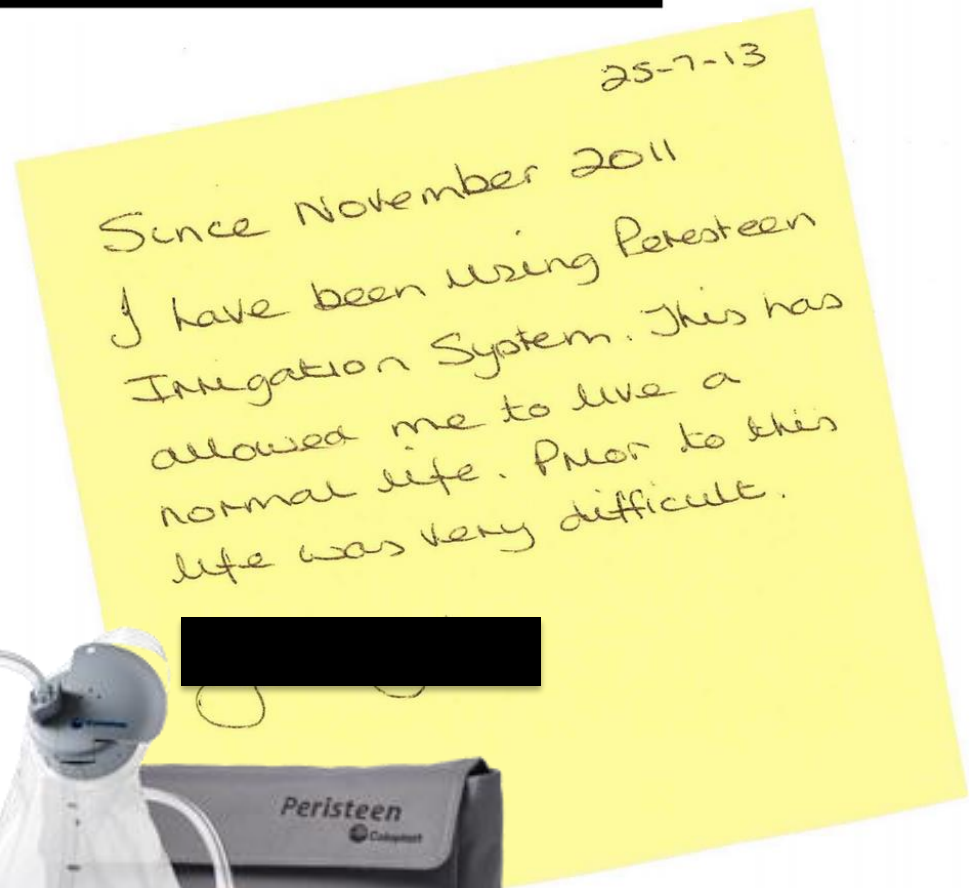 25-7-13
Since November 2011
I have been using Peresteen
Irrigation System. This has
allowed me to live a
normal life. Prior to this
life was very difficult.
Coloplast
Peristeen
Coloplast